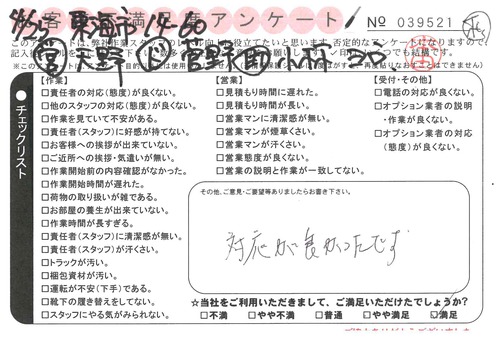 お客様満足度アンケート
No 039521
東海市
【作業】
□責任者の対応(態度)が良くない。
□他のスタッフの対応(態度)が良くない。
□作業を見ていて不安がある。
□責任者(スタッフ)に好感が持てない。
□お客様への挨拶が出来ていない。
□ご近所への挨拶・気遣いが無い。
□作業開始前の内容確認がなかった。
□作業開始時間が遅れた。
□荷物の取り扱いが雑である。
□お部屋の養生が出来ていない。
□作業時間が長すぎる。
□責任者(スタッフ)に清潔感が無い。
□責任者(スタッフ)が汗くさい。
□トラックが汚い。
□梱包資材が汚い。
□運転が不安(下手)である。
□靴下の履き替えをしてない。
□スタッフにやる気がみられない。
【営業】
□見積もり時間に遅れた。
□見積もり時間が長い。
□営業マンに清潔感が無い。
□営業マンが煙草くさい。
□営業マンが汗くさい。
□営業態度が良くない。
□営業の説明と作業が一致してない。
【受付・その他】
□電話の対応が良くない。
□オプション業者の説明
・作業が良くない。
□オプション業者の対応
(態度)が良くない。
●チェックリスト
その他、ご意見・ご要望等ありましたらお書き下さい。
対応が良かったです
☆当社をご利用いただきまして、ご満足いただけたでしょうか?
□不満 □やや不満 □普通 □やや満足 ☑満足